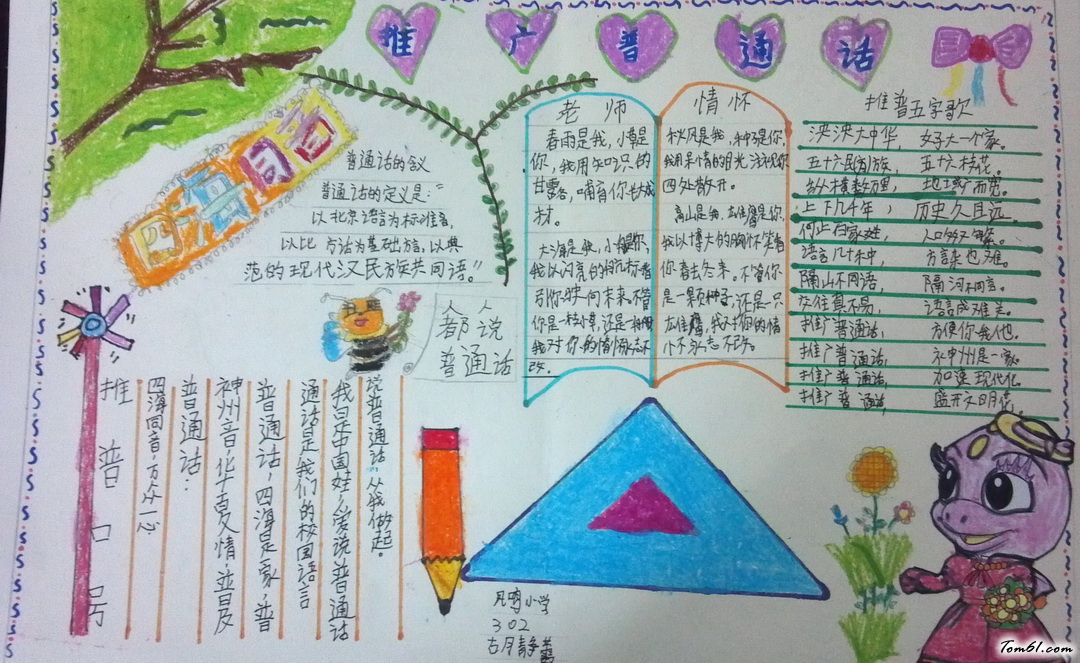 推广普通话
四海同音
普通话的含义
普通话的定义是：“
以北京语言为标准音，
以北 方话为基础方言，以典
范的现代汉民族共同语。”
人人
都说
普通话
老师
春雨是我，小草是
你，我用知识的
甘露，哺育你长大成
材。
大海是我，小船是你，
引你驶向未来。不管
你是一株小草，还是一
我对你的情怀永志不
改。
情怀
秋风是我，种子是你，
四处散开。
高山是我，
我以博大的胸怀笑看
你春去冬来。不管你
是一颗种子，还是一只
我对你的情
怀永志不改。
推普五字歌
泱泱大中华， 好大一个家。
五十六民族， 五十六枝花。
纵横数万里， 地域广而宽。
上下几千年， 历史久且远。
何止百家姓， 人口多又繁。
语言几十种， 方言杂也难。
隔山不同语， 隔河不同言。
交往真不易， 语言成难关。
推广普通话， 方便你我他。
推广普通话， 神州是一家。
推广普通话， 加速现代化。
推广普通话， 盛开文明花。
推普口号
说普通话，从我做起。
我是中国娃，爱说普通话
通话是我们的校园语言
普通话，四海是一家，普
神州音，华夏情，普及
普通话：
四海同音，万众一心
凤鸣小学
302
Tom61.com